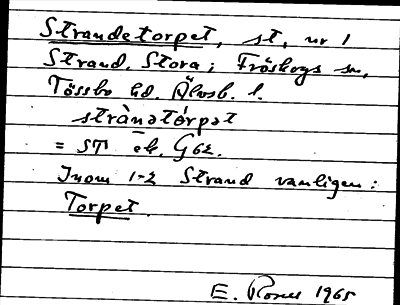 Strandetorpet, st. nr 1
Strand, Stora; Fröskogs sn,
Tössbo hd. Älvsb. l.
strànətórpət
= ST ek. G62.
Inom 1-2 Strand vanligen:
Torpet.
E. 1965